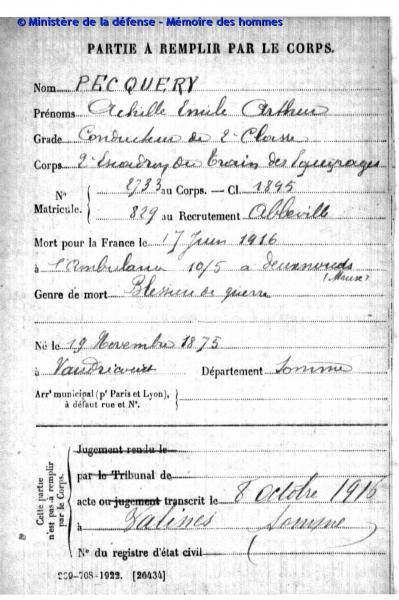 © Ministère de la défense - Mémoire des hommes
PARTIE À REMPLIR PAR LE CORPS.
Nom PECQUERY
Prénoms Achille Emile Arthur
Grade Conducteur de 2e Classe
Corps 2e Escadron du Train des Equipages
N° 2733 au Corps. — Cl. 1895
Matricule. 829 au Recrutement Abbeville
Mort pour la France le 17 Juin 1916
à l'Ambulance 10/5 a Deuxnouds
(Meuse)
Genre de mort Blessure de guerre
Né le 19 Novembre 1875
à Vaudricourt Département Somme
Arrt municipal (pr Paris et Lyon),
à défaut rue et N°.
Cette partie
n'est pas à remplir
par le Corps.
Jugement rendu le
par le Tribunal de
acte ou jugement transcrit le 8 octobre 1916
à Valines Somme
N° du registre d'état civil
-708-1922. [26434]